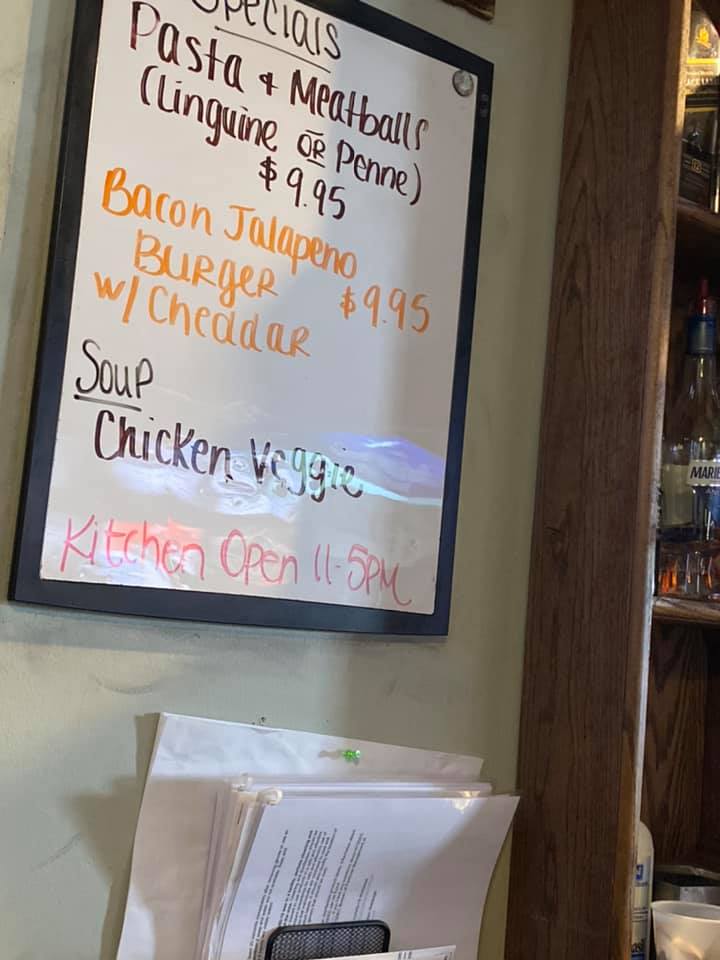 Specials
Pasta & Meatballs
(Linguine OR Penne)
$9.95
Bacon Jalapeno
Burger $9.95
w/ Cheddar
Soup
Chicken Veggie
Kitchen Open 11-5PM
MARIE